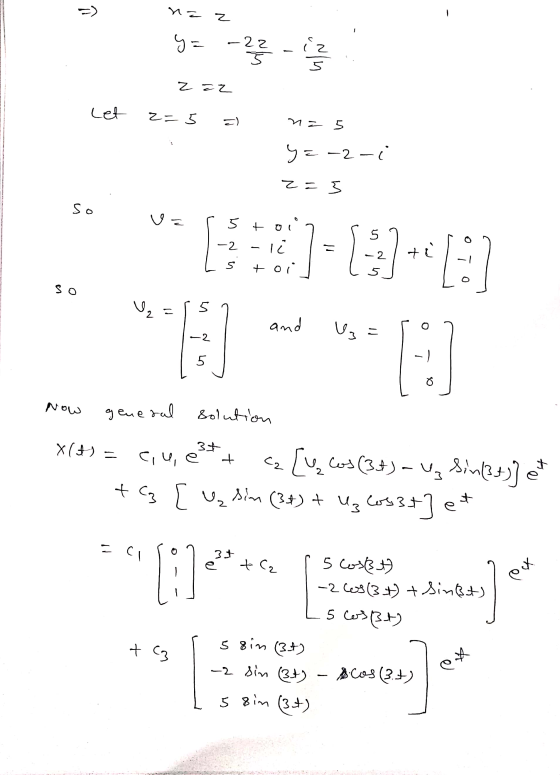 => x = z
y = -2z/5 - iz/5
z = z
Let z = 5 => x = 5
y = -2 - i
z = 5
So v = [5 + 0i; -2 - 1i; 5 + 0i] = [5; -2; 5] + i [0; -1; 0]
So v₂ = [5; -2; 5] and v₃ = [0; -1; 0]
Now general solution
X(t) = c₁ v₁ e^{3t} + c₂ [v₂ cos(3t) - v₃ sin(3t)] e^t
+ c₃ [v₂ sin(3t) + v₃ cos3t] e^t
= c₁ [0; 1; 1] e^{3t} + c₂ [5 cos(3t); -2 cos(3t) + sin(3t); 5 cos(3t)] e^t
+ c₃ [5 sin(3t); -2 sin(3t) - cos(3t); 5 sin(3t)] e^t